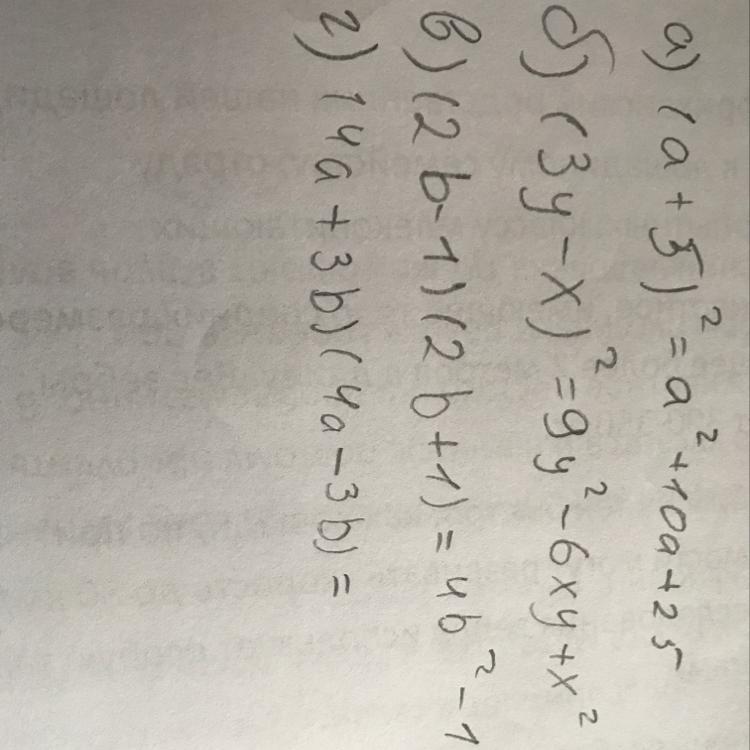 а) (a + 5)² = a² + 10a + 25
б) (3y - x)² = 9y² - 6xy + x²
в) (2b - 1)(2b + 1) = 4b² - 1
г) (4a + 3b)(4a - 3b) =